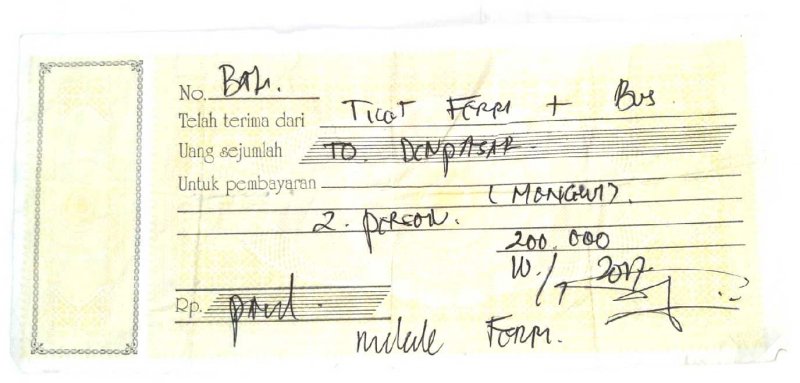 No. BALI.
Telah terima dari TICET FERRI + BUS
Uang sejumlah TO. DENPASAR.
Untuk pembayaran (MENGWI).
2. PERSON.
200.000
2017.
Rp.
FERRI.